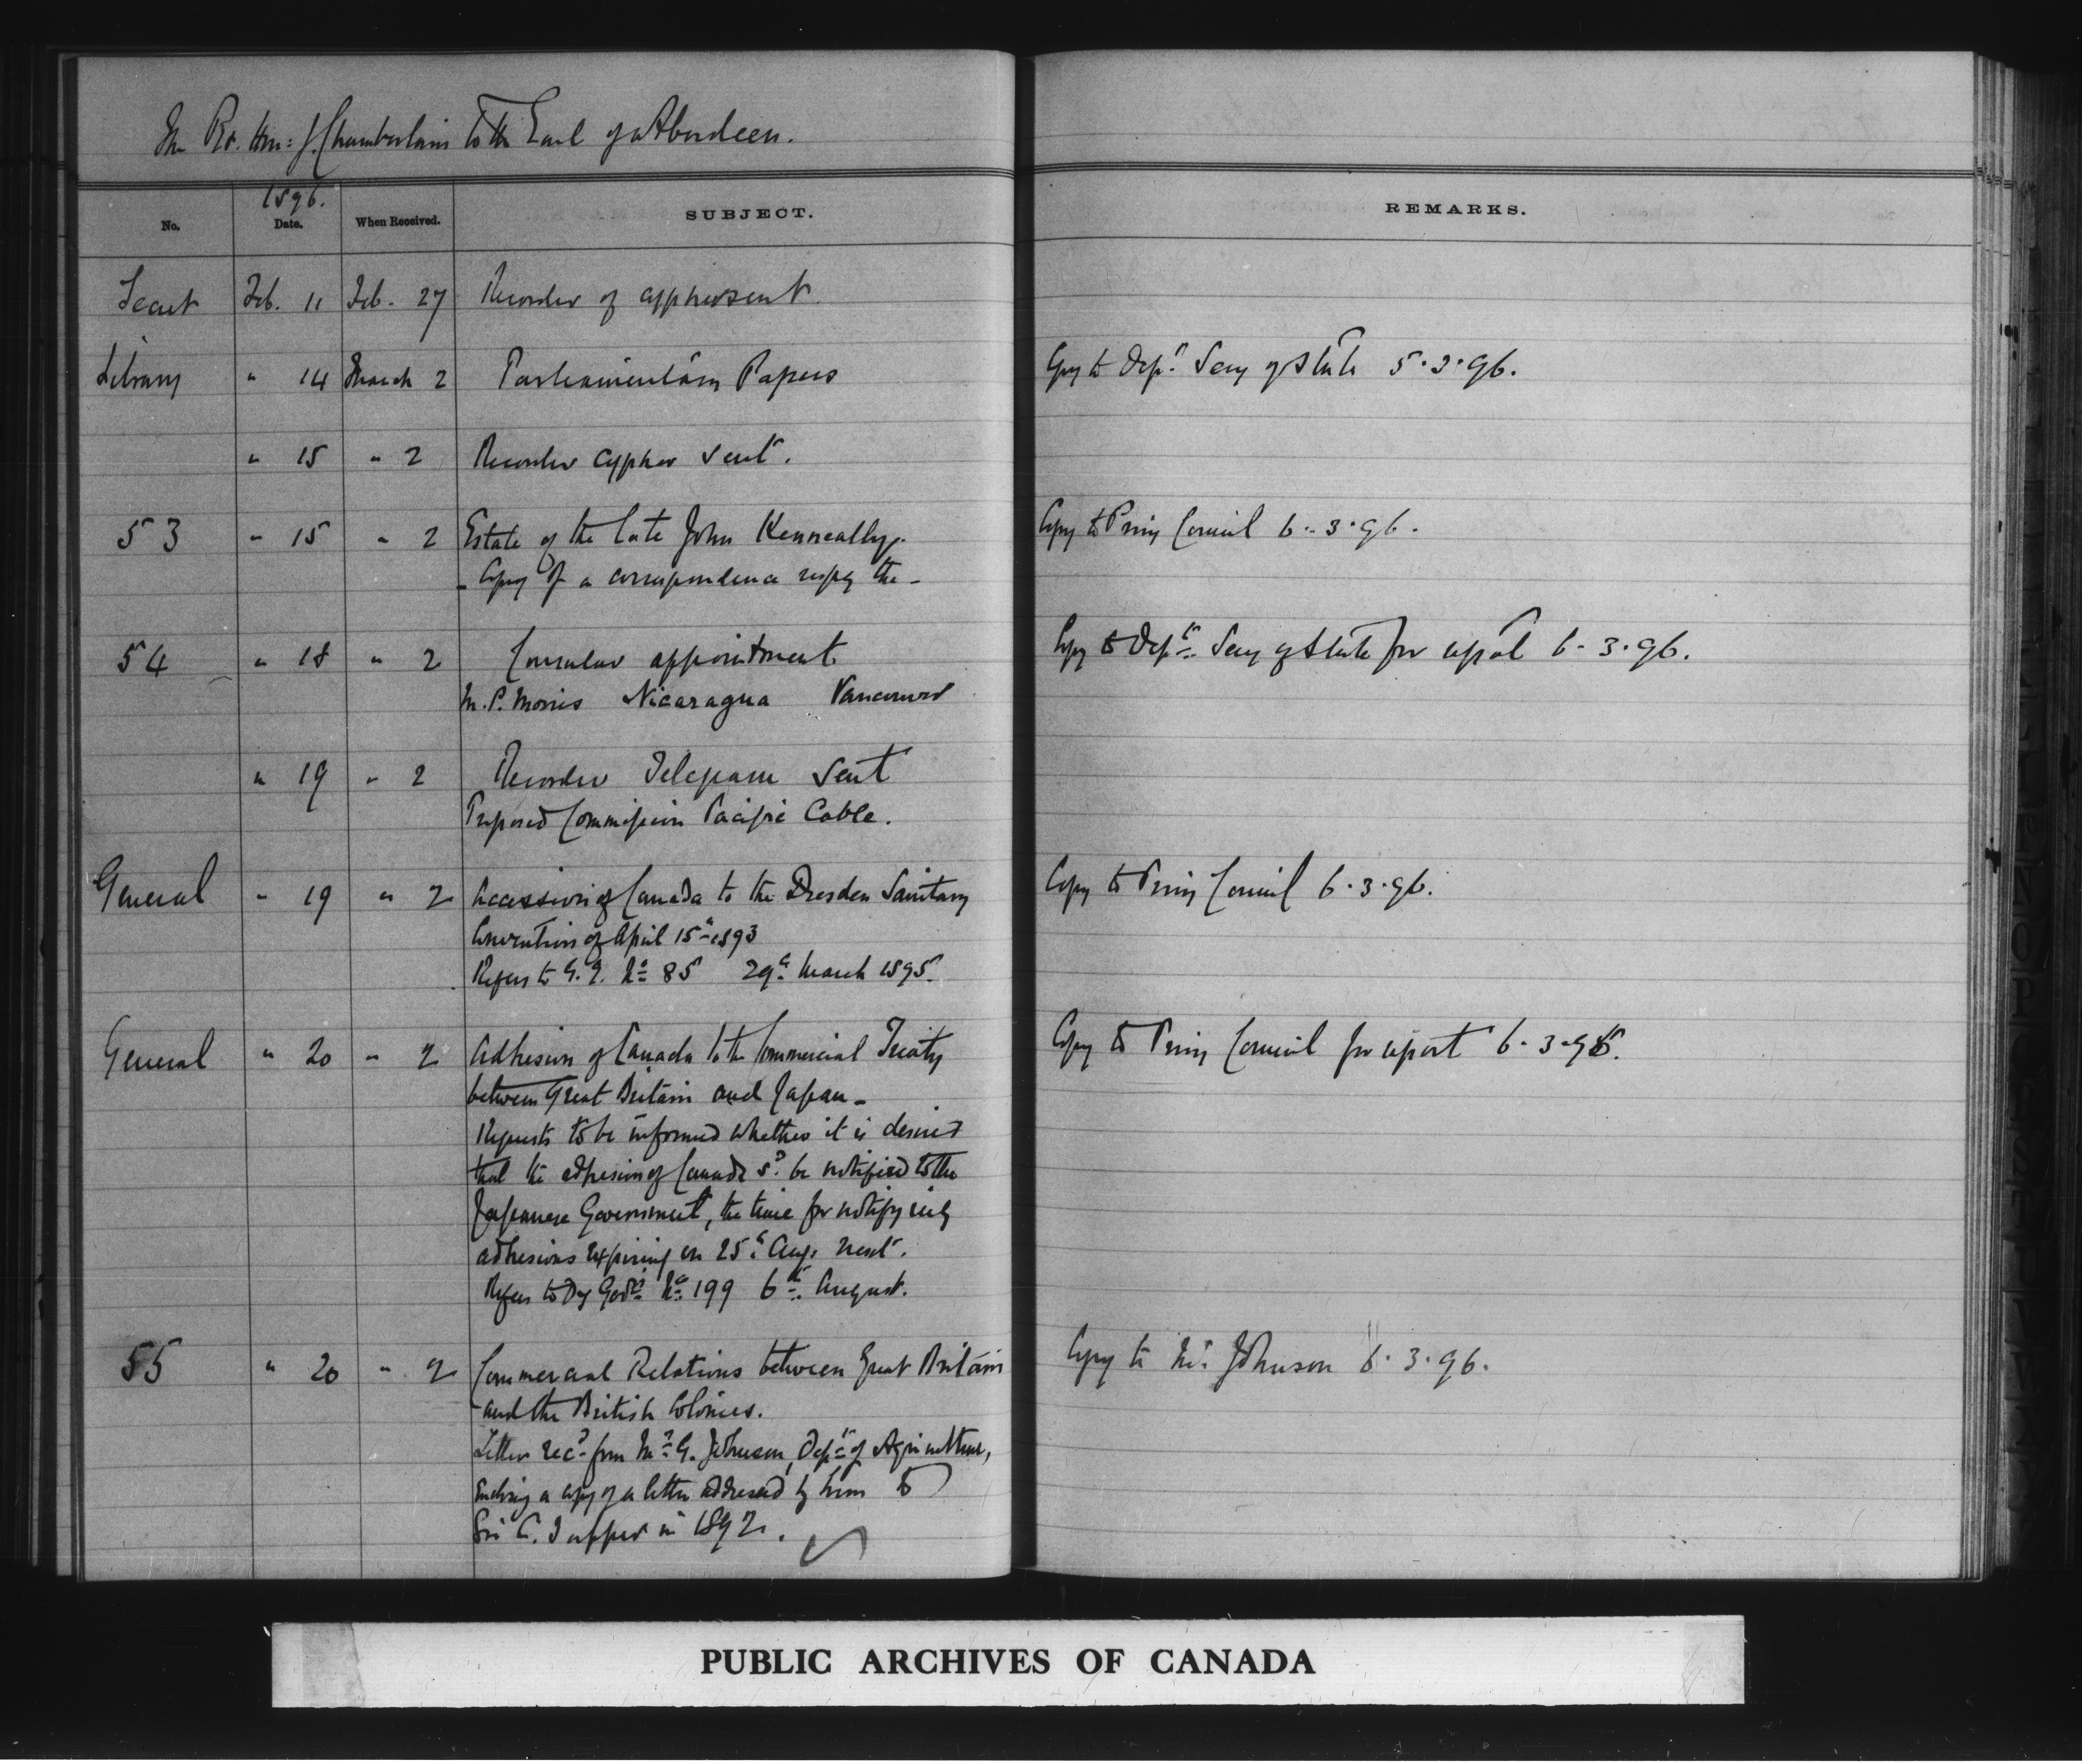 The Rt. Hon: J. Chamberlain to the Earl of Aberdeen.
1896.
No. Date. When Received. SUBJECT. REMARKS.
Secret Feb. 11 Feb. 27 Recorder of cypher sent
Library " 14 March 2 Parliamentary Papers Copy to Dept. Secy of State 5.3.96.
" 15 " 2 Recorder cypher sent.
53 " 15 " 2 Estate of the late John Kenneally. Copy to Privy Council 6.3.96.
- Copy of a correspondence respg the -
54 " 18 " 2 Consular appointment Copy to Dept. Secy of State for report 6.3.96.
M.P. Morris Nicaragua Vancouver
" 19 " 2 Recorder Telegram sent
Proposed Commission Pacific Cable.
General " 19 " 2 Accession of Canada to the Dresden Sanitary Copy to Privy Council 6.3.96.
Convention of April 15th 1893
Refers to G.G. No 85 29th March 1895.
General " 20 " 2 Adhesion of Canada to the Commercial Treaty Copy to Privy Council for report 6.3.96.
between Great Britain and Japan -
Requests to be informed whether it is desired
that the adhesion of Canada sd. be notified to the
Japanese Government, the time for notifying
adhesions expiring on 25th Aug. next.
Refers to No 199 6th August.
55 " 20 " 2 Commercial Relations between Great Britain Copy to Mr. Johnson 6.3.96.
and the British Colonies.
Letter recd from Mr G. Johnson, Dept of Agriculture,
Enclosing a copy of a letter addressed by him to
Sir C. Tupper in 1892.
PUBLIC ARCHIVES OF CANADA